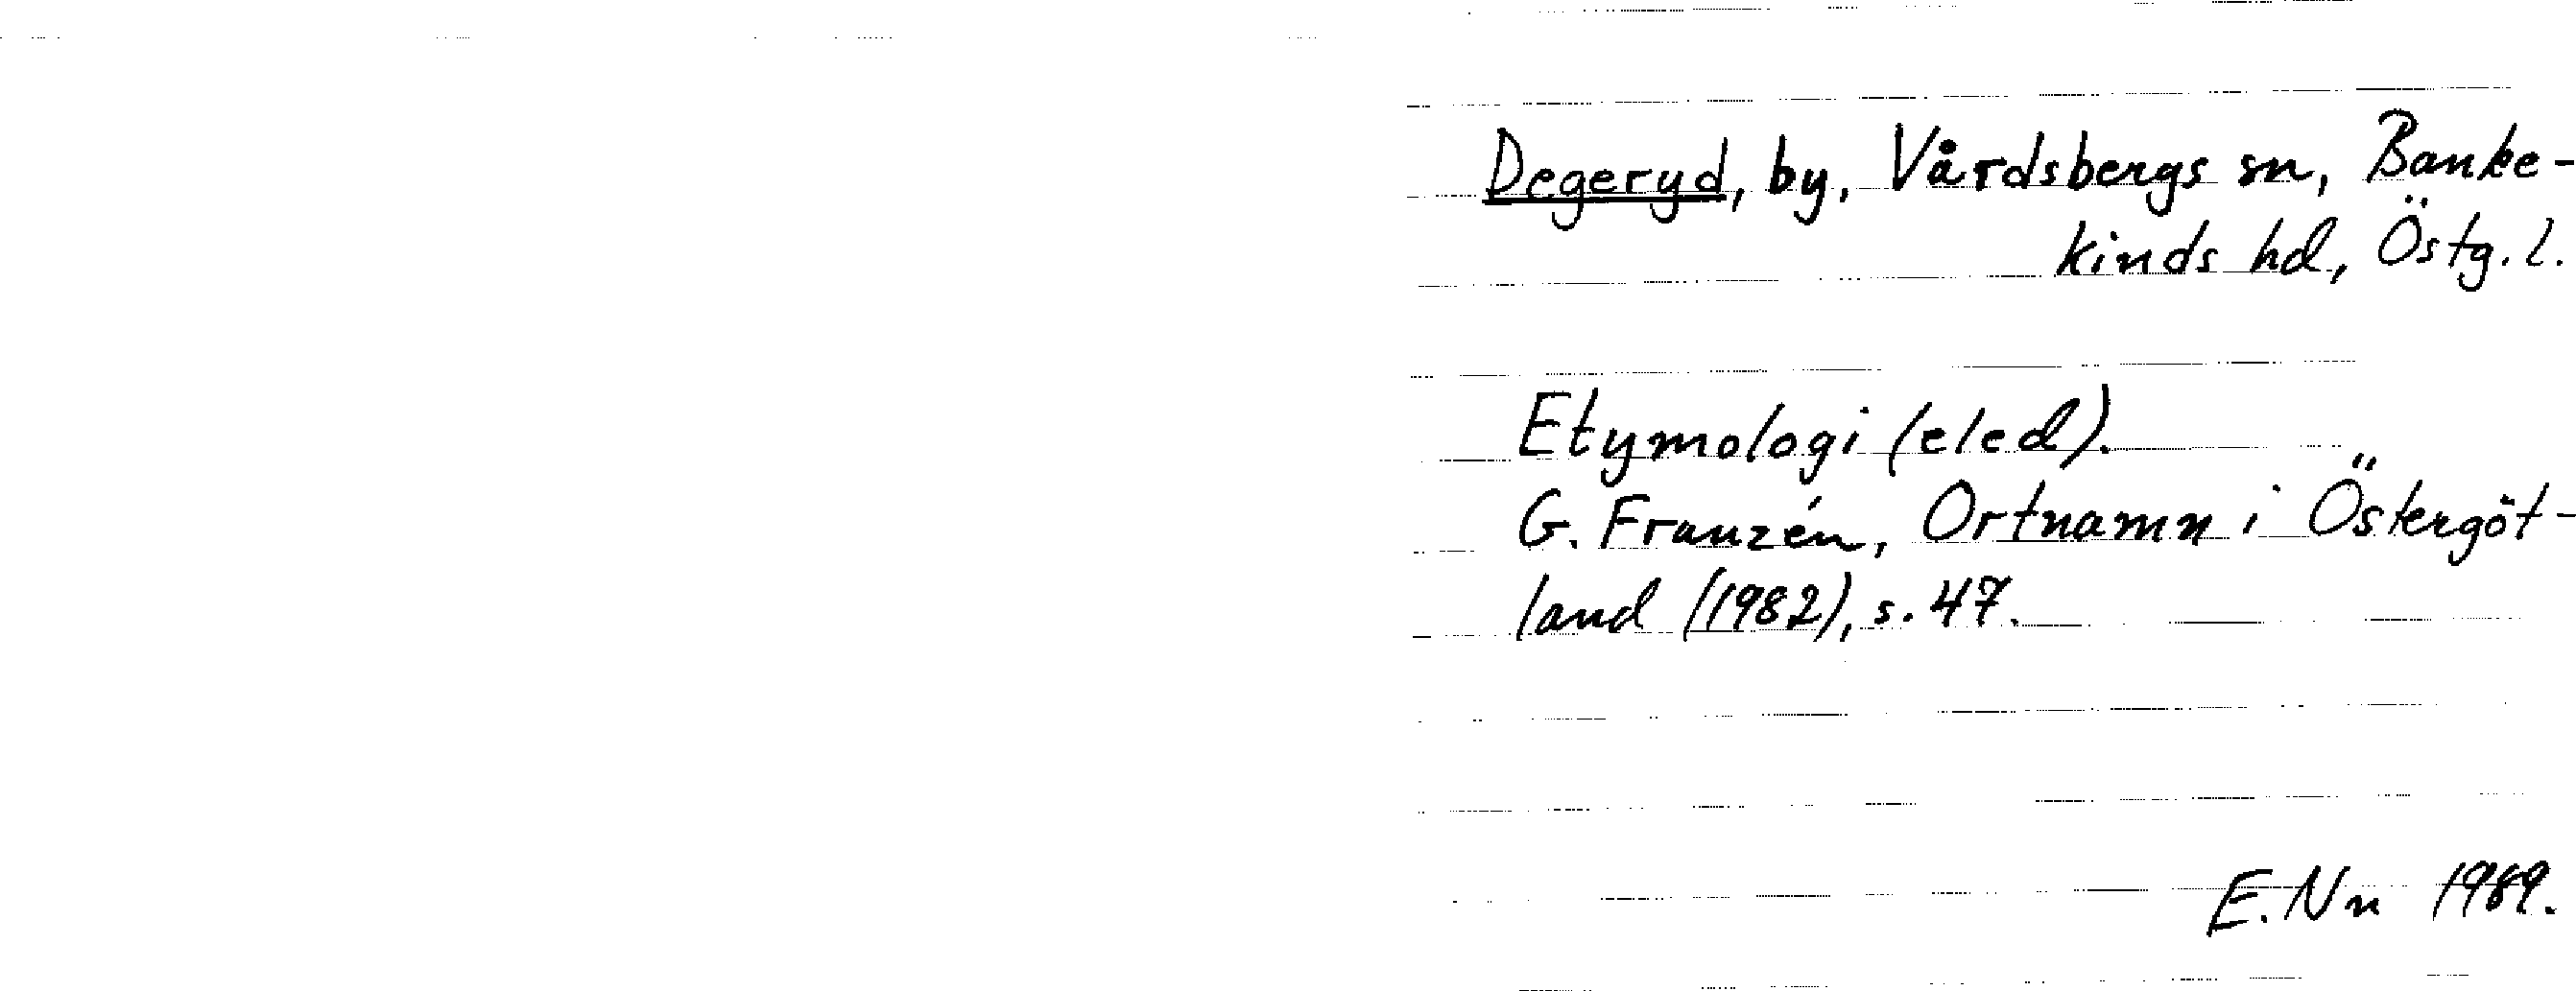 Degeryd, by, Vårdsbergs sn, Banke-
kinds hd, Östg. l.
Etymologi (eled).
G. Franzén, Ortnamn i Östergöt-
land (1982), s. 47.
E. Nn 1989.